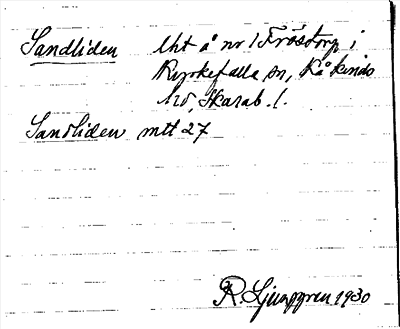 Sandliden Uht å nr 1 Fröstorp i
Kyrkefalla sn, Kåkinds
hd, Skarab. l.
Sandliden mtl 27
R. Ljunggren 1930